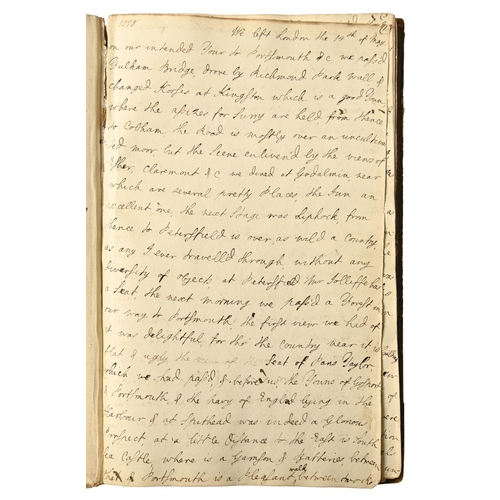 1778
We left London the 14th of May
on our intended Tour to Portsmouth &c we pass'd
Fulham Bridge, drove by Richmond Park wall &
changed Horses at Kingston which is a good Town
where the assizes for Surry are held from thence
to Cobham the Road is mostly over an uncultiva
ted moor but the Scene enliven'd by the views of
Esher, Claremont &c we dined at Godalmin near
which are several pretty Places, the Inn an
excellent one, the next Stage was Liphock, from
thence to Petersfield is over as wild a Country
as any I ever travell'd through, without any
diversity of object, at Petersfield Mr Jolliffe has
a Seat, the next morning we pass'd a Forest on
our way to Portsmouth, the first view we had of
it was delightful for tho' the Country near it is
flat & ugly, the view of the Seat of Paris Taylor
which we had pass'd, & before us, the Towns of Gosport
& Portsmouth & the Navy of England lying in the
Harbour & at Spithead was indeed a Glorious
Prospect at a little Distance to the East is South
Sea Castle, where is a Garrison & Batteries, between
that & Portsmouth is a Pleasant walk between two